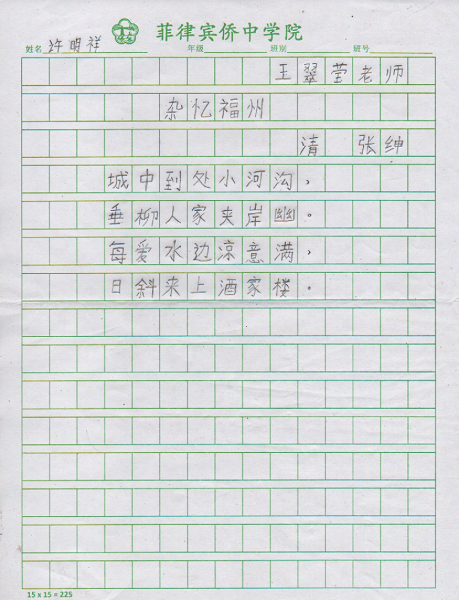 菲律宾侨中学院
姓名 许明祥 年级 班别 班号
王翠莹老师
杂忆福州
清 张绅
城中到处小河沟,
垂柳人家夹岸幽。
每爱水边凉意满,
日斜来上酒家楼。
15 x 15 = 225